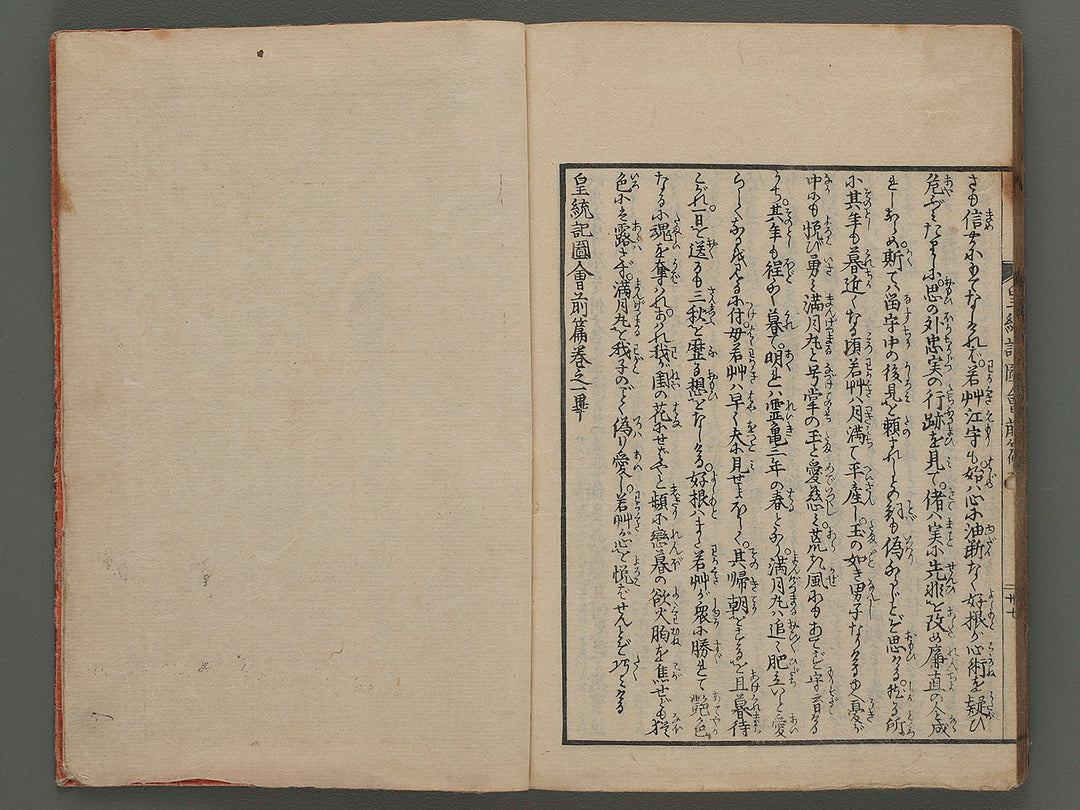 さも信実にもてなしければ。若艸江字も始は心に油断なく好根が心術を疑ひ
危ぶみたりしに。思の外忠実の行跡を見て。偖は実に先非を改め廉直の人と成
れしならめ。斯ては留守中の後見を頼まれしとの詞も偽ならじとぞ思ひける。然る所
に其年も暮近くなる頃若艸は月満て平産し。玉の如き男子なりけるゆへ憂が
中にも悦び勇み満月丸と号掌の玉と愛慈み荒き風にもあてじと守育る
うち。其年も程なく暮て。明れば霊亀三年の春となり満月丸は追々肥立いと愛
らしくなるを見るに付母若艸は早く夫に見せまほしく。其帰朝をまつこと旦暮待
こがれ一日を送るも三秋を歴る想をなしける。好根はまた若艸が衆に勝れて艶色
なるに魂を奪はれあはれ我が閨の花にせばやと頻に恋慕の欲火胸を焦せども猶
色にも露さず。満月丸を我子のごとく偽り愛し。若艸が心を悦ばせんとぞ巧みける
皇統記圖會前篇巻之一畢
皇統記圖會前篇
二十七